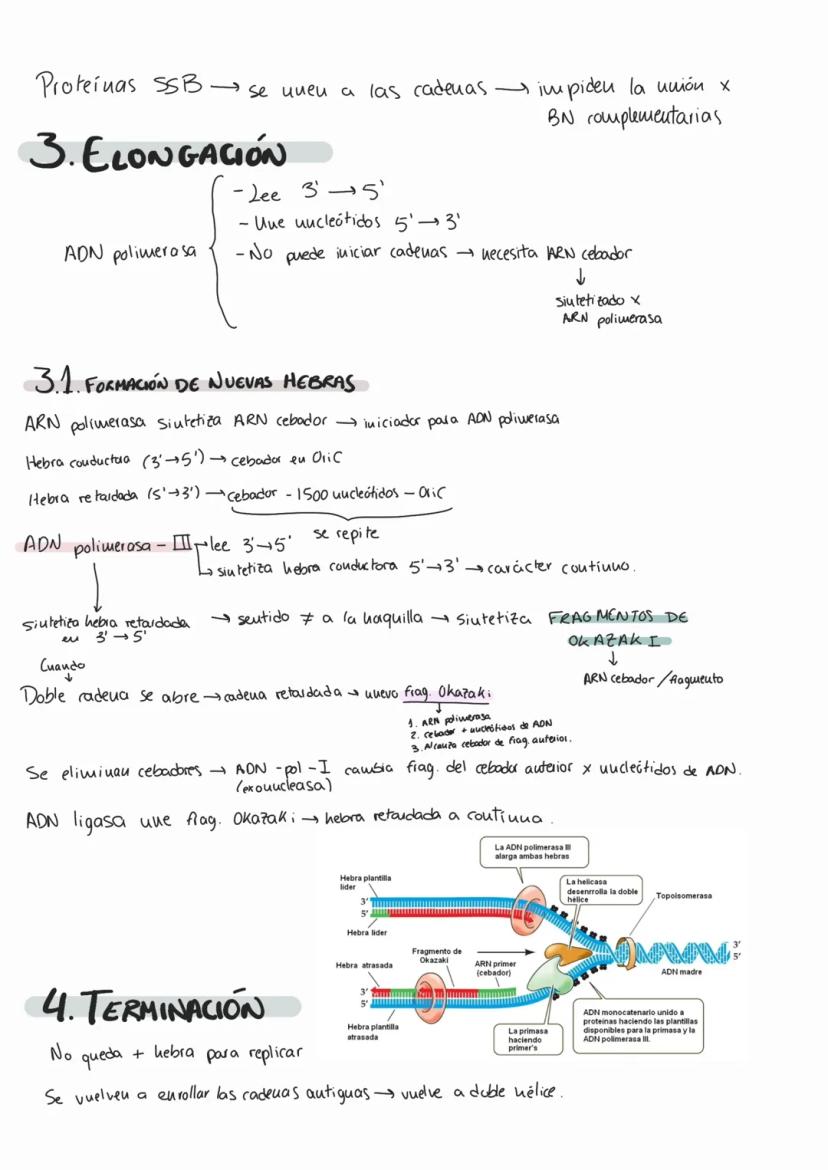 Proteínas SSB → se unen a las cadenas → impiden la unión x
BN complementarias
3. ELONGACIÓN
- Lee 3' → 5'
- Une nucleótidos 5' → 3'
ADN polimerasa - No puede iniciar cadenas → necesita ARN cebador
↓
sintetizado x
ARN polimerasa
3.1. FORMACIÓN DE NUEVAS HEBRAS
ARN polimerasa sintetiza ARN cebador → iniciador para ADN polimerasa
Hebra conductora (3'→5') → cebador en OriC
Hebra retardada (5'→3') → cebador - 1500 nucleótidos - OriC
se repite
ADN polimerasa - III lee 3'→5'
↳ sintetiza hebra conductora 5'→3' → carácter continuo.
sintetiza hebra retardada → sentido ≠ a la horquilla → sintetiza FRAGMENTOS DE
en 3' → 5' OKAZAKI
Cuando ↓
↓ ARN cebador / fragmento
Doble cadena se abre → cadena retardada → nuevo frag. Okazaki
1. ARN polimerasa
2. cebador + nucleótidos de ADN
3. Alcanza cebador de frag. anterior.
Se eliminan cebadores → ADN - pol - I cambia frag. del cebador anterior x nucleótidos de ADN.
(exonucleasa)
ADN ligasa une frag. Okazaki → hebra retardada a continua.
La ADN polimerasa III
alarga ambas hebras
Hebra plantilla
lider
La helicasa
desenrrolla la doble
hélice
Topoisomerasa
3'
5'
Hebra lider
3'
5'
ADN madre
Fragmento de
Okazaki
ARN primer
(cebador)
Hebra atrasada
3'
5'
Hebra plantilla
atrasada
La primasa
haciendo
primer's
ADN monocatenario unido a
proteínas haciendo las plantillas
disponibles para la primasa y la
ADN polimerasa III.
4. TERMINACIÓN
No queda + hebra para replicar
Se vuelven a enrollar las cadenas antiguas → vuelve a doble hélice.